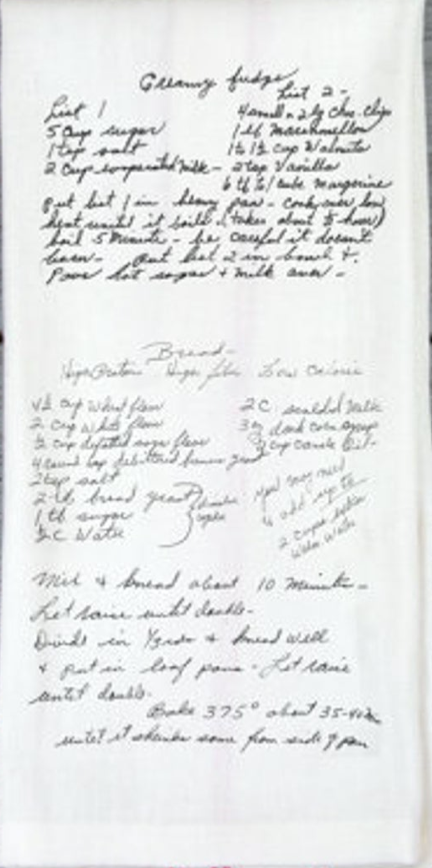 Creamy fudge
List 1
5 cup sugar
1 tsp salt
2 cup evaporated milk -
List 2 -
4 small or 2 lg choc. chips
1 lb Marshmallow
1 to 1½ cup Walnuts
2 tsp Vanilla
6 tb to 1 cube margerine
Put list 1 in heavy pan - cook over low
heat until it boils (takes about ½ hour)
boil 5 Minute - be careful it doesn't
burn - Put list 2 in bowl &
Pour hot sugar & milk over -
Bread -
High Protein High fibre Low Calorie
cup Wheat flour
2 cup White flour
½ cup defatted soya flour
4 cup debittered
2 tsp salt
2 tb bread
1 tb sugar
½ C Water
dissolve
2 C scalded milk
3 dark corn syrup
cup Oil -
you may need
to add up to
2 cups
Warm Water
Mix & knead about 10 Minute -
Let raise until double -
Divide in & knead well
& put in loaf pans - Let raise
until double -
Bake 375° about 35-40
until it shrinks some from side of pan